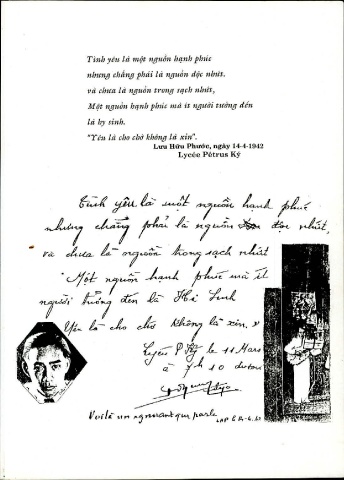 Tình yêu là một nguồn hạnh phúc
nhưng chẳng phải là nguồn độc nhứt.
và chưa là nguồn trong sạch nhứt,
Một nguồn hạnh phúc mà ít người tưởng đến
là hy sinh.
"Yêu là cho chớ không là xin".
Lưu Hữu Phước, ngày 14-4-1942
Lycée Pétrus Ký
Tình yêu là một nguồn hạnh phúc
nhưng chẳng phải là nguồn độc nhứt,
và chưa là nguồn trong sạch nhứt
"Một nguồn hạnh phúc mà ít
người tưởng đến là Hi Sinh
Yêu là cho chớ không là xin."
Lycée P. Ký le 11 Mars
à 7h 10 du soir
Voilà un ignorant qui parle